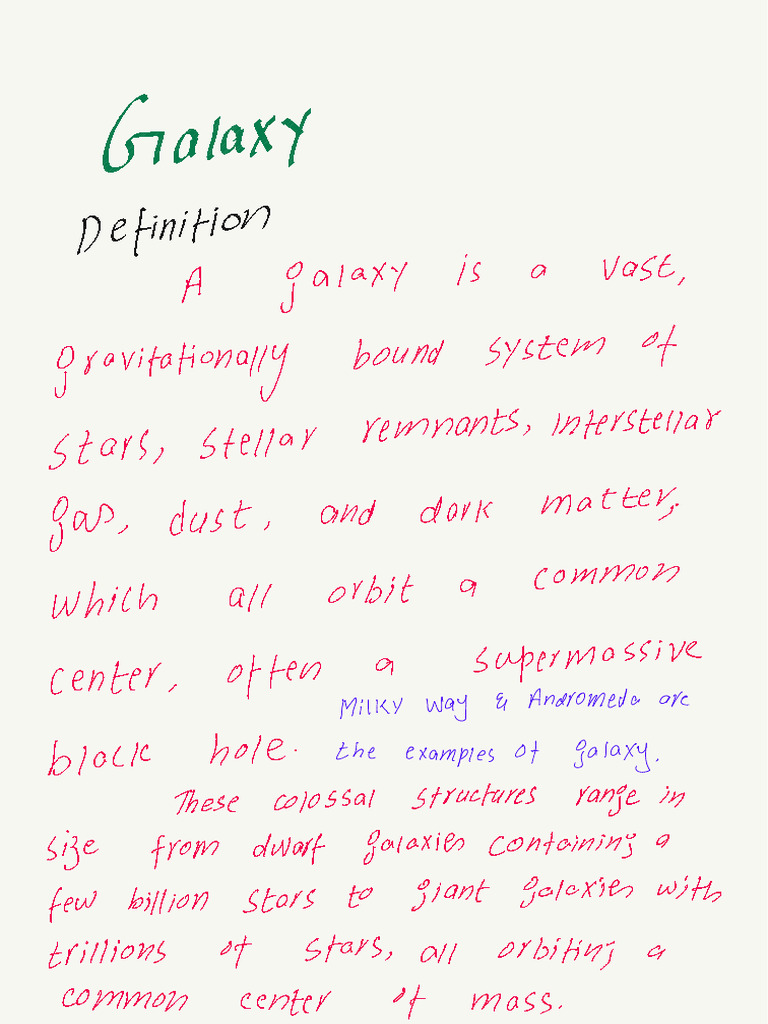 Galaxy
Definition
A galaxy is a vast,
gravitationally bound system of
stars, stellar remnants, interstellar
gas, dust, and dark matter,
which all orbit a common
center, often a supermassive
Milky Way & Andromeda are
black hole. the examples of galaxy.
These colossal structures range in
size from dwarf galaxies containing a
few billion stars to giant galaxies with
trillions of stars, all orbiting a
common center of mass.